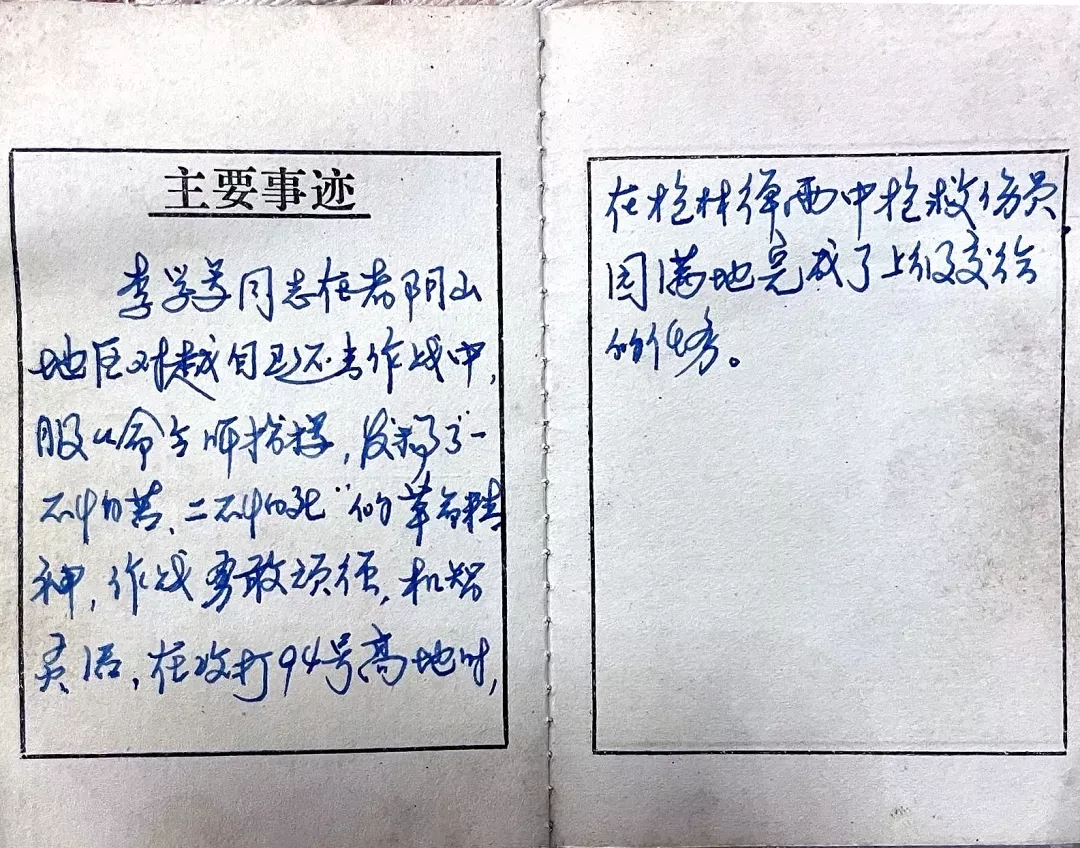 主要事迹
李学学同志在者阴山
地区对越自卫还击作战中，
服从命令听指挥，发扬了“一
不怕苦、二不怕死”的革命精
神，作战勇敢顽强，机智
灵活，在攻打94号高地时，
在枪林弹雨中抢救伤员，
圆满地完成了上级交给
的任务。